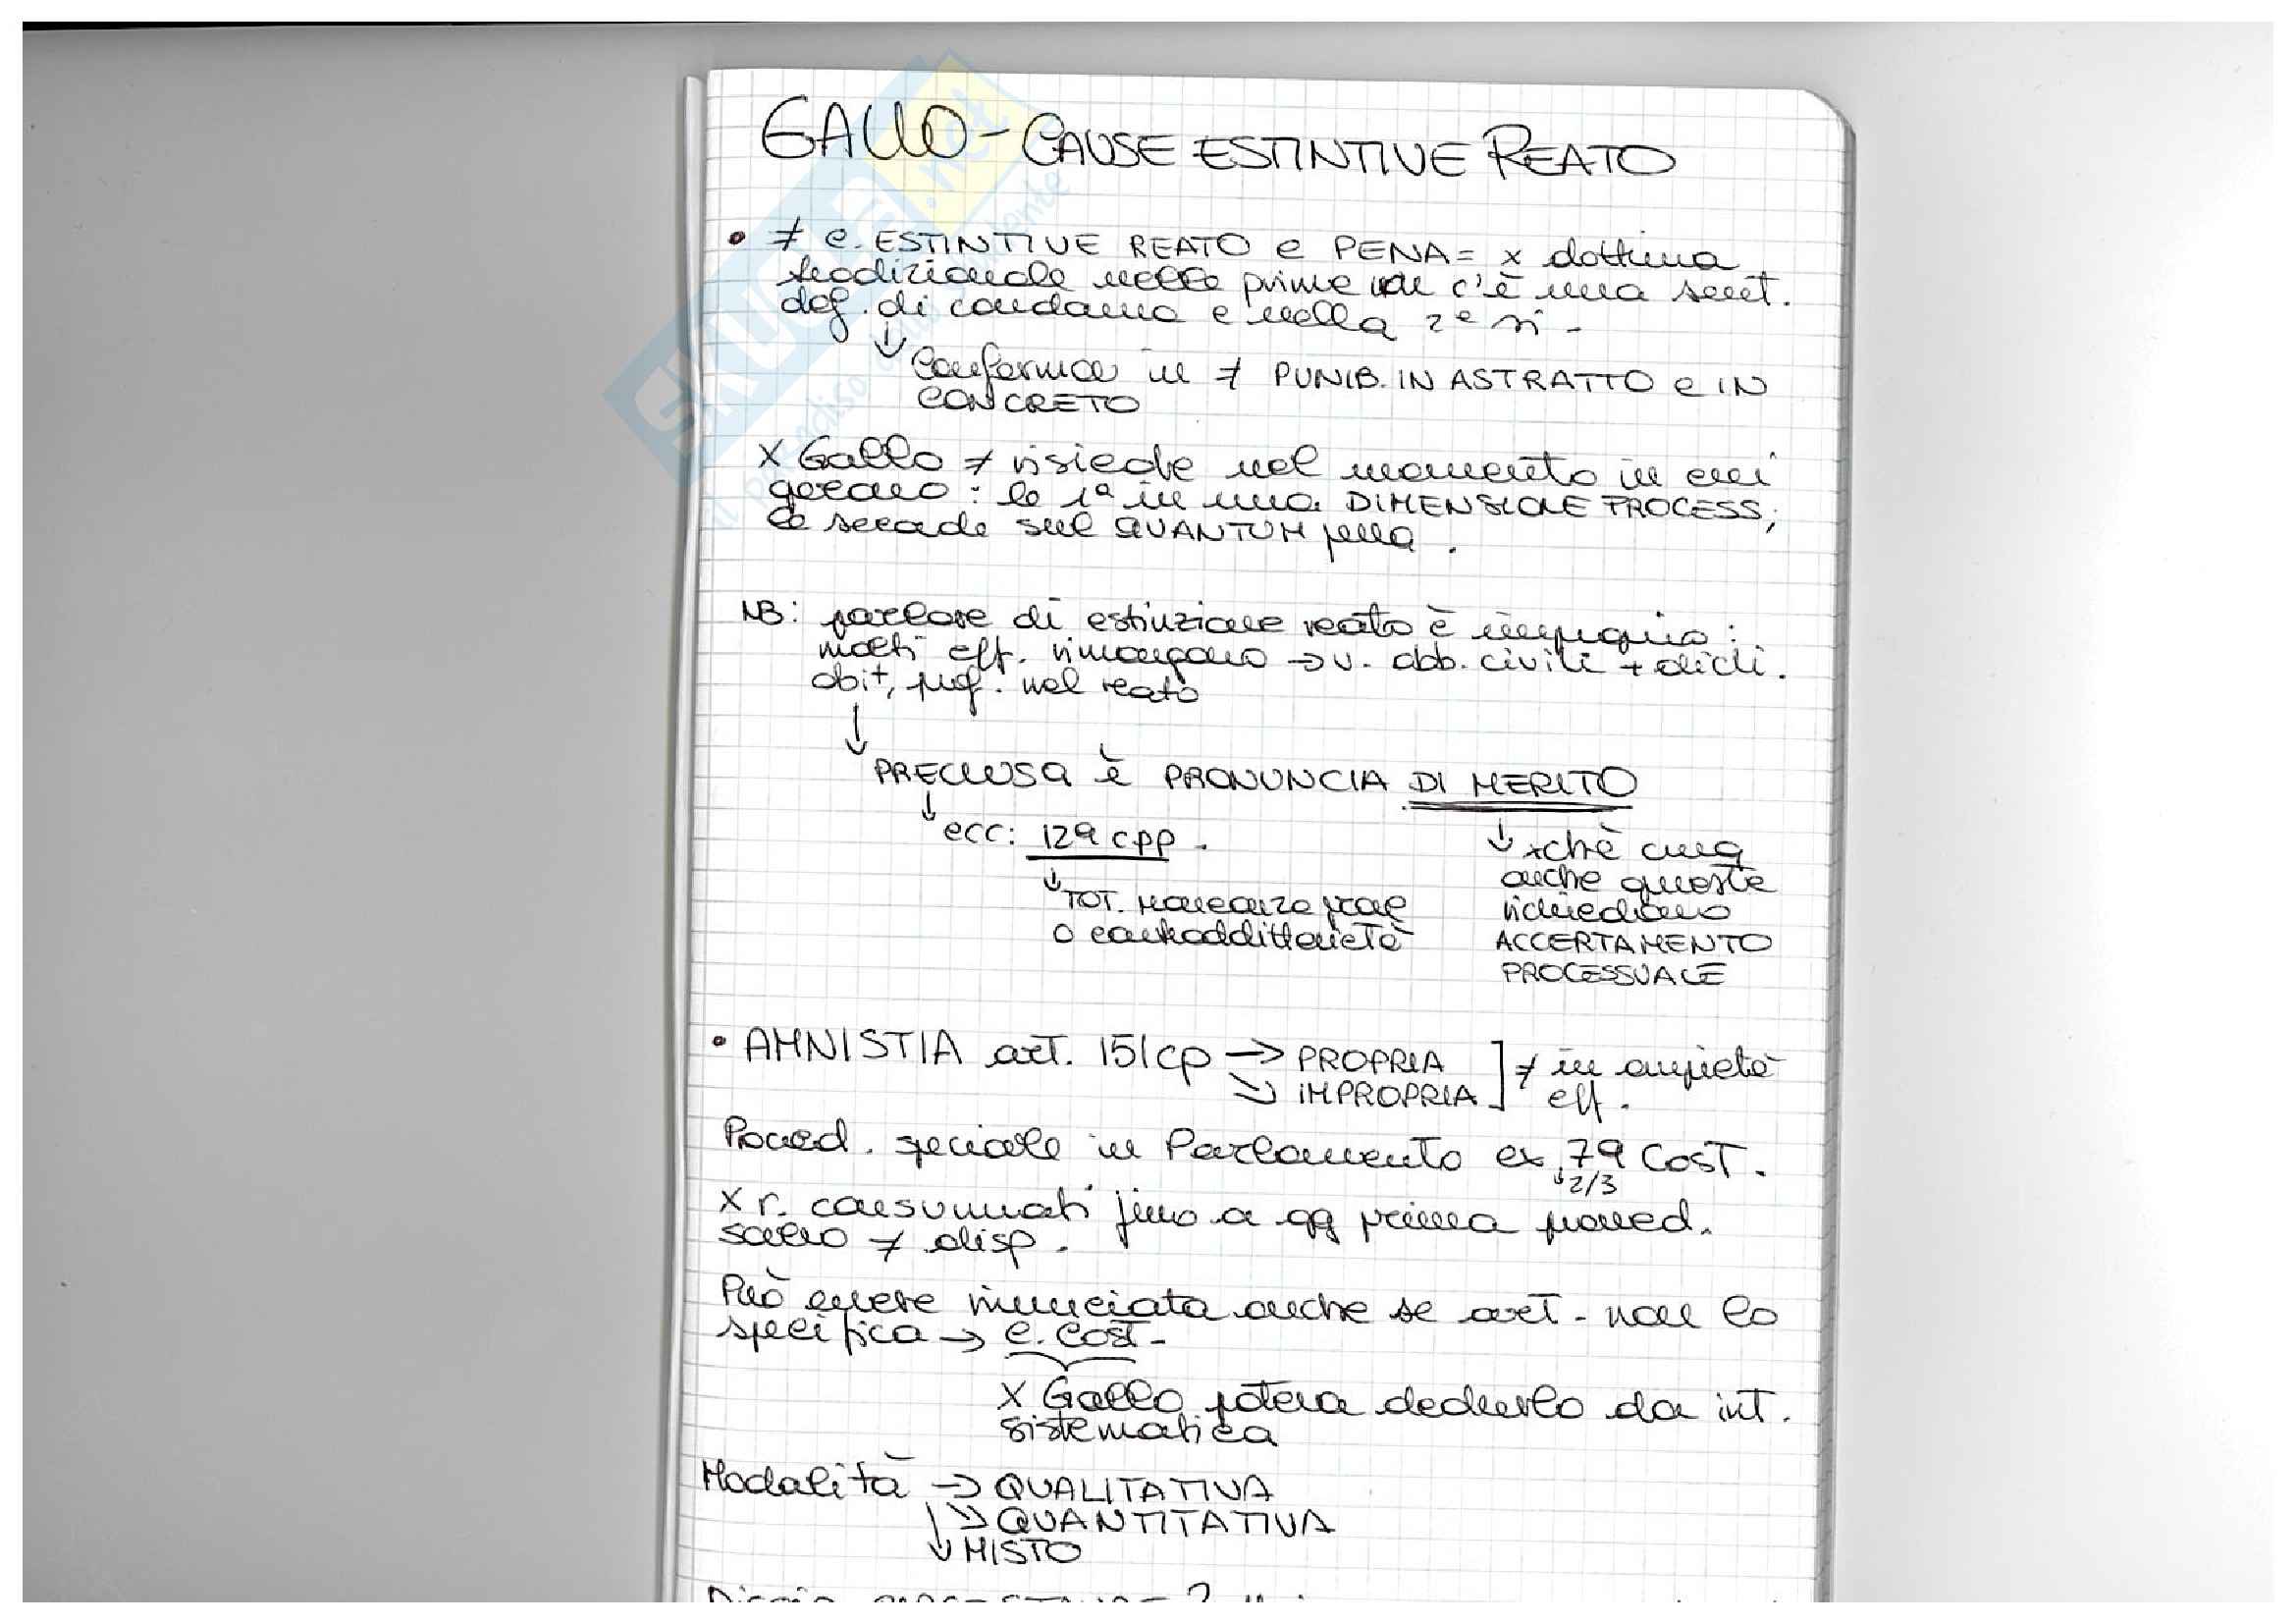 GALLO - CAUSE ESTINTIVE REATO
• ≠ c. ESTINTIVE REATO e PENA = x dottrina
tradizionale nelle prime non c'è una sent.
def. di condanna e nella 2ª sì -
↓ Conferma in ≠ PUNIB. IN ASTRATTO e IN
CONCRETO
x Gallo ≠ risiede nel momento in cui
operano : le 1ª in una DIMENSIONE PROCESS,
le seconde sul QUANTUM pena .
NB: parlare di estinzione reato è improprio :
molti eff. rimangono → v. obb. civili + dich.
abit, prof. nel reato
↓
PRECLUSA è PRONUNCIA DI MERITO
↓ ecc: 129 cpp .
↓ TOT. mancanza prove
o contraddittorietà
↓ xchè cmq
anche queste
richiedono
ACCERTAMENTO
PROCESSUALE
• AMNISTIA art. 151 cp → PROPRIA ] ≠ in ampiezza
↘ IMPROPRIA ] eff .
Proced. speciale in Parlamento ex 79 COST.
↓ 2/3
x r. consumati fino a gg prima provved.
salvo ≠ disp .
Può essere rinunciata anche se art. non lo
specifica → C. Cost -
x Gallo poteva dedurlo da int.
sistematica
Modalità → QUALITATIVA
↘ QUANTITATIVA
↓ MISTO
SKUOLA.net
il paradiso dello studente